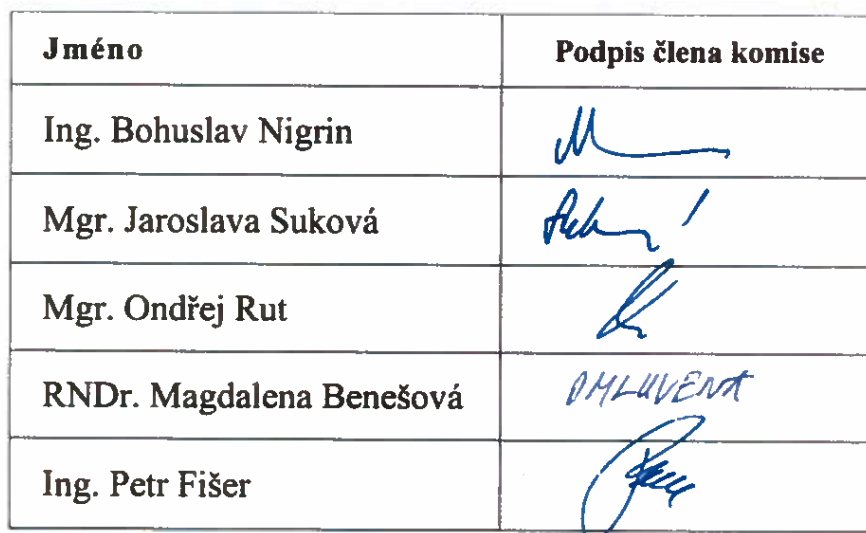 Jméno Podpis člena komise
Ing. Bohuslav Nigrin
Mgr. Jaroslava Suková
Mgr. Ondřej Rut
RNDr. Magdalena Benešová OMLUVENA
Ing. Petr Fišer